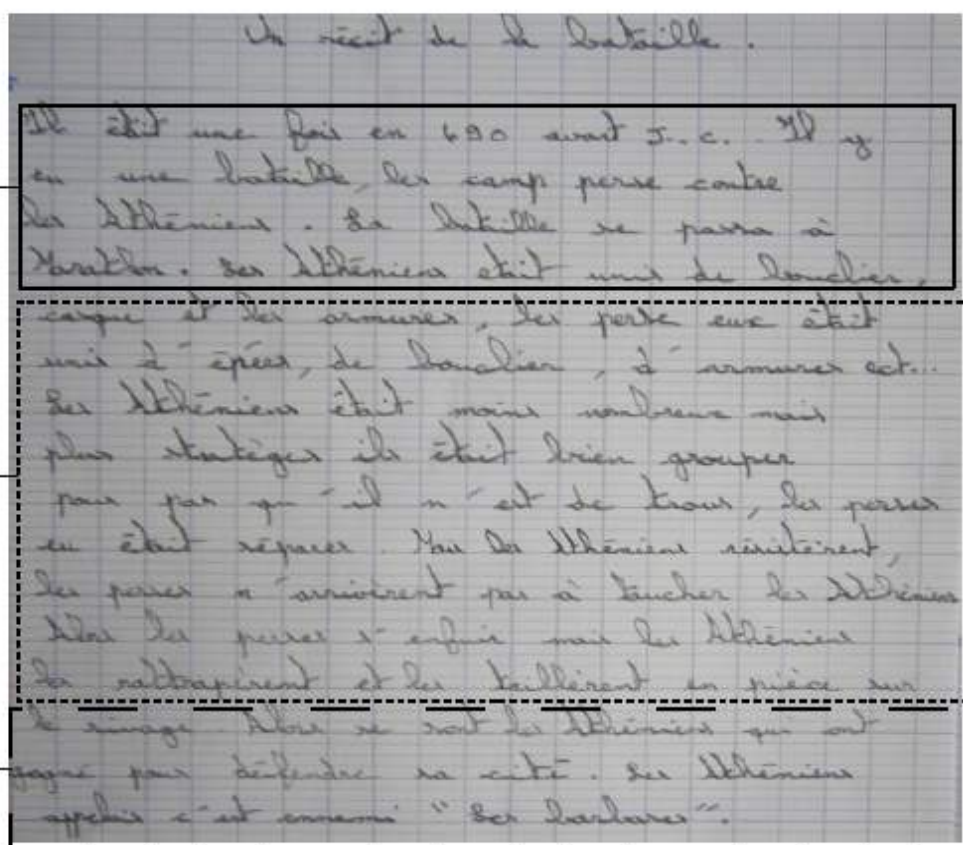 Un récit de la bataille.
Il était une fois en 490 avant J.-C. Il y
eu une bataille, les camp perse contre
les Athéniens. La bataille se passa à
Marathon. Les Athéniens était unis de bouclier,
casque et les armures, les perse eux était
unis d'épées, de bouclier, d'armures ect...
Les Athéniens était moins nombreux mais
plus stratèges ils était bien grouper
pour pas qu'il n'est de trous, les perses
eu était séparer. Mais les Athéniens résistèrent,
les perses n'arrivèrent pas à toucher les Athéniens
Alors les perses s'enfuir mais les Athéniens
les rattrapèrent et les taillèrent en pièce sur
le rivage. Alors se sont les Athéniens qui ont
gagné pour défendre sa cité. Les Athéniens
appelais c'est ennemi "Les barbares".